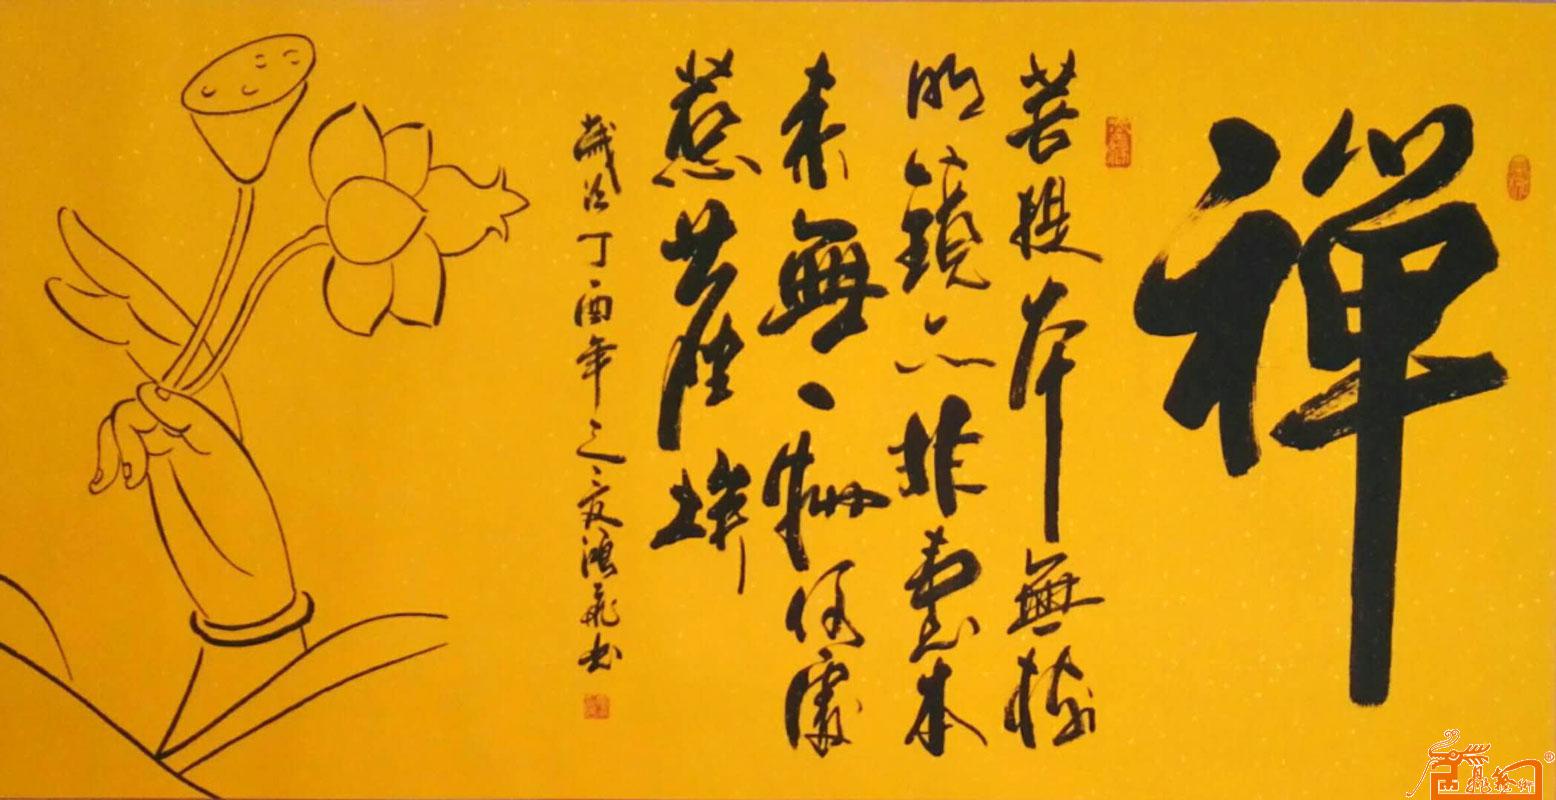 禪
菩提本無樹
明鏡亦非臺本
來無一物何處
惹塵埃
歲次丁酉年之夏鴻飛書